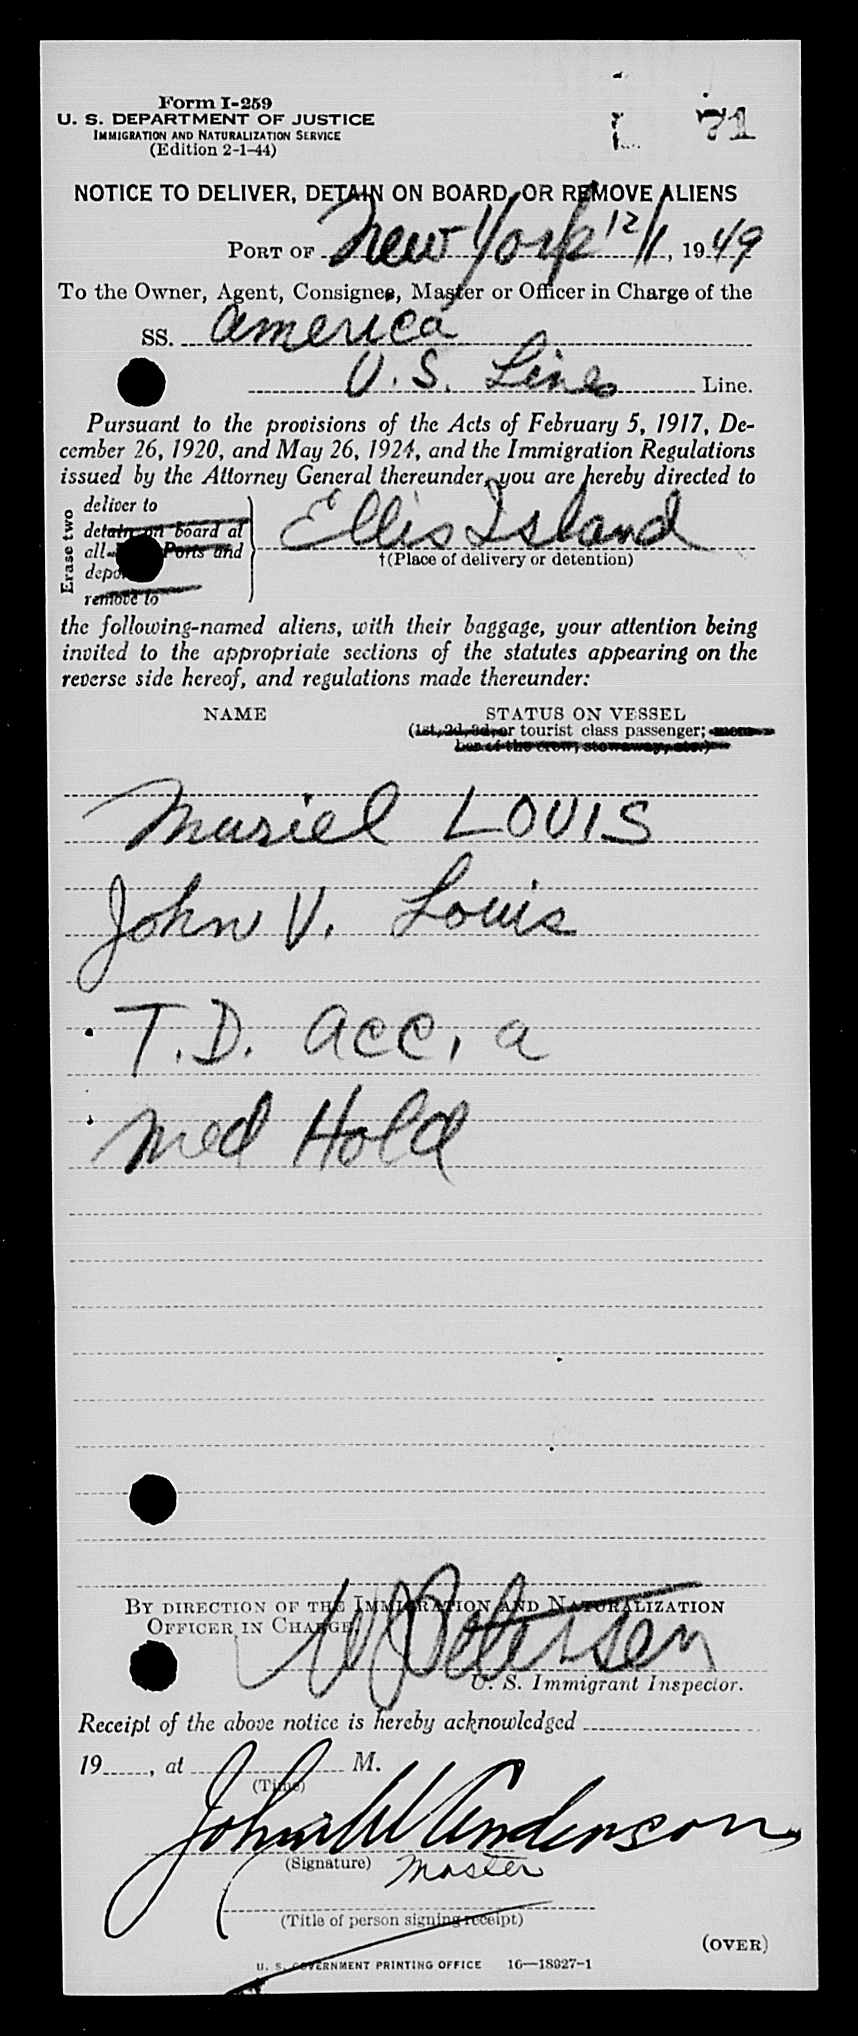 Form I-259
U. S. DEPARTMENT OF JUSTICE
IMMIGRATION AND NATURALIZATION SERVICE
(Edition 2-1-44)
71
NOTICE TO DELIVER, DETAIN ON BOARD, OR REMOVE ALIENS
PORT OF New York 12/1, 1949
To the Owner, Agent, Consignee, Master or Officer in Charge of the
SS. America
U.S. Lines Line.
Pursuant to the provisions of the Acts of February 5, 1917, De-
cember 26, 1920, and May 26, 1924, and the Immigration Regulations
issued by the Attorney General thereunder, you are hereby directed to
Erase two
deliver to
detain on board at
all Ports and
remove to
Ellis Island
†(Place of delivery or detention)
the following-named aliens, with their baggage, your attention being
invited to the appropriate sections of the statutes appearing on the
reverse side hereof, and regulations made thereunder:
NAME STATUS ON VESSEL
(1st, 2d, 3d, or tourist class passenger; mem-
ber of the crew, stowaway, etc.)
Muriel LOUIS
John V. Louis
T.D. acc, a
Med Hold
BY DIRECTION OF THE IMMIGRATION AND NATURALIZATION
OFFICER IN CHARGE
Petersen
U. S. Immigrant Inspector.
Receipt of the above notice is hereby acknowledged
19......, at M.
(Time)
John W Anderson
(Signature) Master
(Title of person signing receipt)
(OVER)
U. S. GOVERNMENT PRINTING OFFICE 16—18927-1